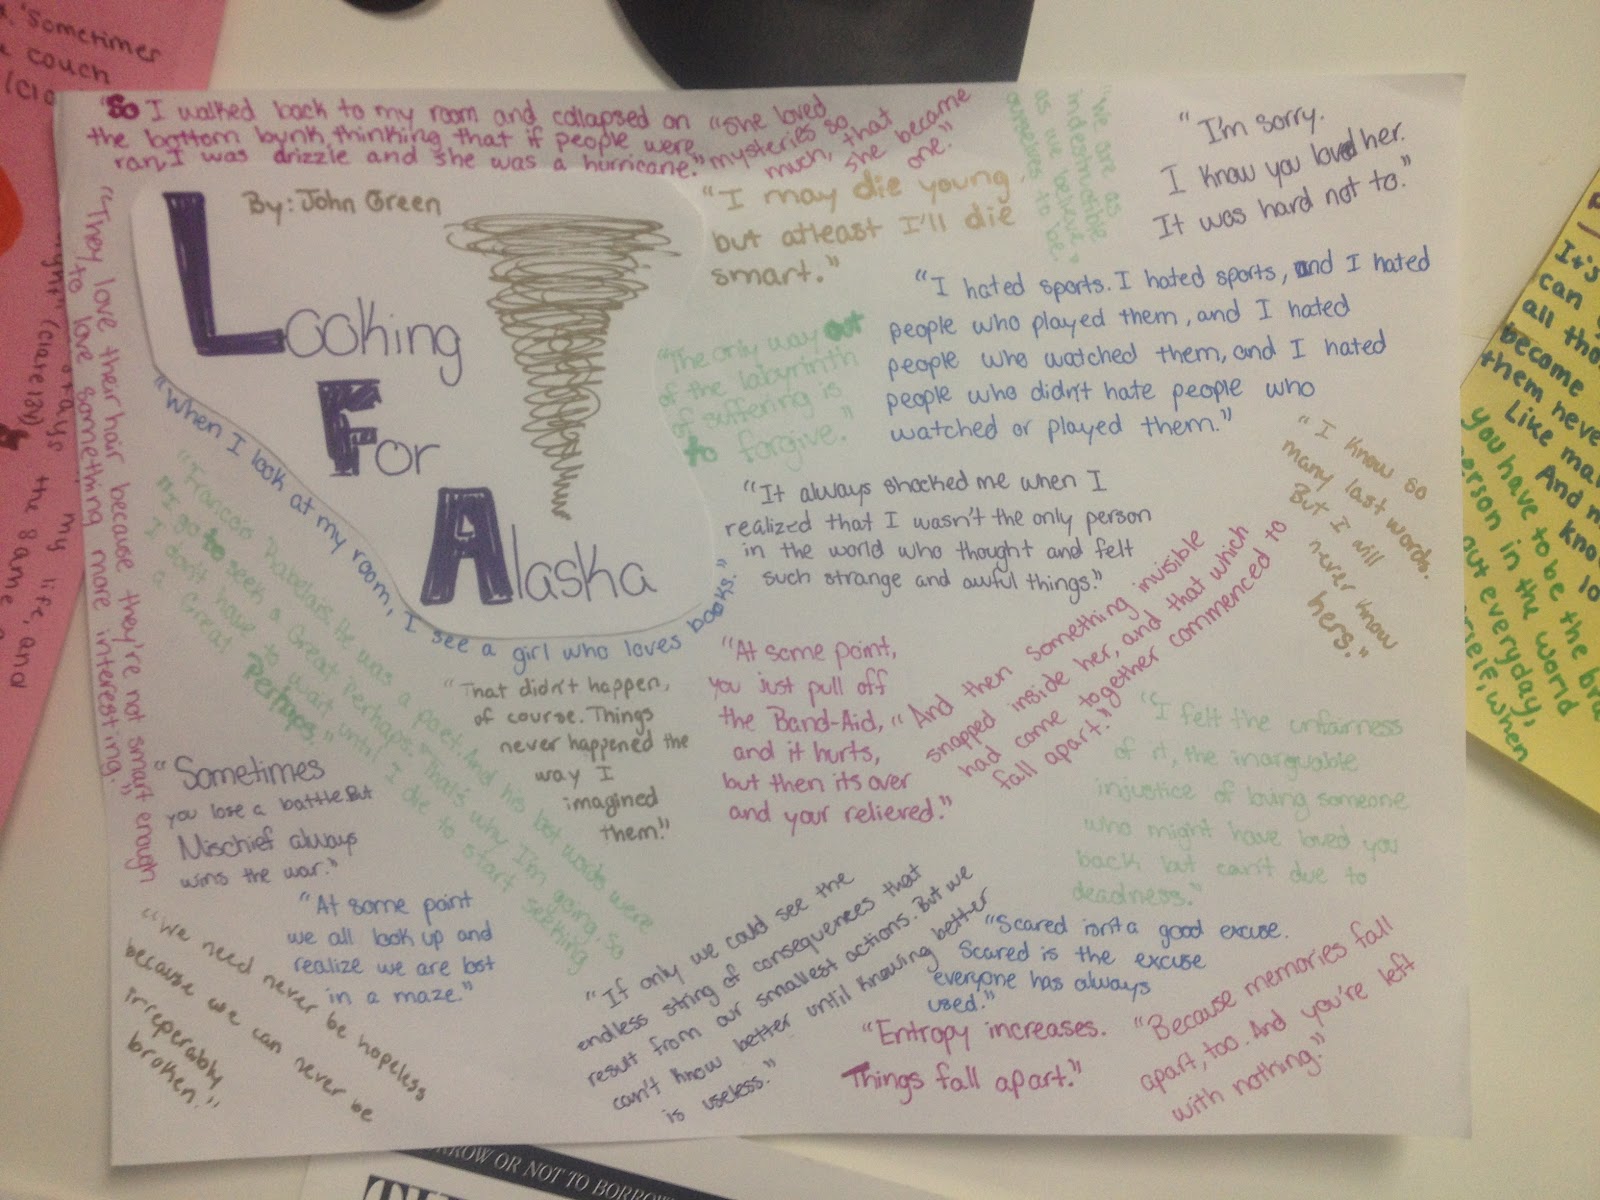 "So I walked back to my room and collapsed on
the bottom bunk, thinking that if people were
rain, I was drizzle and she was a hurricane."
"She loved
mysteries so
much, that
she became
one."
"We are as
indestructible
as we believe
ourselves to be."
"I'm sorry.
I know you loved her.
It was hard not to."
By: John Green
Looking
For
Alaska
"I may die young,
but atleast I'll die
smart."
"I hated sports. I hated sports, and I hated
people who played them, and I hated
people who watched them, and I hated
people who didn't hate people who
watched or played them."
"The only way out
of the labyrinth
of suffering is
to forgive."
"They love their hair because they're not smart enough
to love something more interesting."
"When I look at my room, I see a girl who loves books."
"It always shocked me when I
realized that I wasn't the only person
in the world who thought and felt
such strange and awful things."
"I know so
many last words.
But I will
never know
hers."
"Francois Rabelais. He was a poet. And his last words were
"I go to seek a Great Perhaps." That's why I'm going. So
I don't have to wait until I die to start seeking
a Great Perhaps."
"That didn't happen,
of course. Things
never happened the
way I
imagined
them."
"At some point,
you just pull off
the Band-Aid,
and it hurts,
but then its over
and your relieved."
"And then something invisible
snapped inside her, and that which
had come together commenced to
fall apart."
"I felt the unfairness
of it, the inarguable
injustice of loving someone
who might have loved you
back but can't due to
deadness."
"Sometimes
you lose a battle. But
Mischief always
wins the war."
"At some point
we all look up and
realize we are lost
in a maze."
"We need never be hopeless
because we can never be
irreperably
broken."
"If only we could see the
endless string of consequences that
result from our smallest actions. But we
can't know better until knowing better
is useless."
"Scared isn't a good excuse.
Scared is the excuse
everyone has always
used."
"Entropy increases.
Things fall apart."
"Because memories fall
apart, too. And you're left
with nothing."
"Sometimes
couch
my life, and
the same
It's
can
all tho
become
them neve
Like
And
you have to be the
person in the world
out everyday,
when
OR NOT TO BORROW